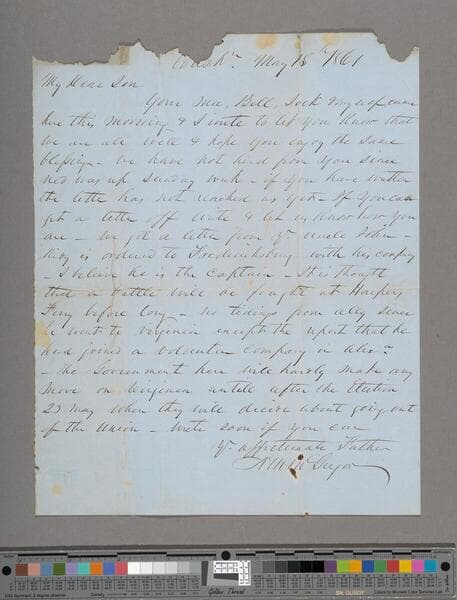 Washn. May 15th 1861
My Dear Son
Your Ma, Bell, Jock & myself came
here this Morning & I write to let you know that
we are all well & hope you enjoy the same
blessing - we have not herd from you since
Ned was up Sunday week - if you have written
the letter has not reached us yet - If you can
get a letter off write & let us know how you
are - We got a letter from yr uncle John -
is ordered to Fredericksburg with his company
- I believe he is the Captain - It is thought
that a battle will be fought at Harpers
Ferry before long - no tidings from since
he went to Virginia except the report that he
had joined a Volunteer Company in Alexa
- the Government here will hardly make any
move on Virginia untill after the Election
23 May when they will decide about going out
of the Union - write soon if you can
yr affectionate Father
N M McGregor
Golden Thread